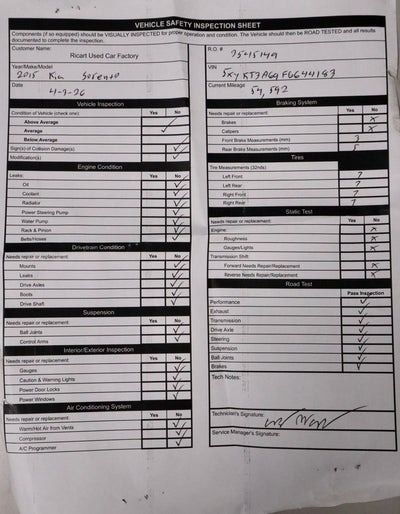 VEHICLE SAFETY INSPECTION SHEET
Components (if so equipped) should be VISUALLY INSPECTED for proper operation and condition. The Vehicle should then be ROAD TESTED and all results
documented to complete the inspection.
Customer Name:
Ricart Used Car Factory
Year/Make/Model
2015 Kia Sorento
Date
Vehicle Inspection
Condition of Vehicle (check one): Yes No
Above Average
Average ✓
Below Average
Sign(s) of Collision Damage(s) ✓
Modification(s) ✓
Engine Condition
Leaks: Yes No
Oil ✓
Coolant ✓
Radiator ✓
Power Steering Pump ✓
Water Pump ✓
Rack & Pinion ✓
Belts/Hoses ✓
Drivetrain Condition
Needs repair or replacement: Yes No
Mounts ✓
Leaks ✓
Drive Axles ✓
Boots ✓
Drive Shaft ✓
Suspension
Needs repair or replacement: Yes No
Ball Joints ✓
Control Arms ✓
Interior/Exterior Inspection
Needs repair or replacement: Yes No
Gauges ✓
Caution & Warning Lights ✓
Power Door Locks ✓
Power Windows ✓
Air Conditioning System
Needs repair or replacement: Yes No
Warm/Hot Air from Vents ✓
Compressor ✓
A/C Programmer ✓
R.O. #
VIN
Current Mileage
54,592
Braking System
Needs repair or replacement: Yes No
Brakes X
Calipers X
Front Brake Measurements (mm)
Rear Brake Measurements (mm)
Tires
Tire Measurements (32nds)
Left Front 7
Left Rear 7
Right Front 7
Right Rear 7
Static Test
Needs repair or replacement: Yes No
Engine: X
Roughness X
Gauges/Lights X
Transmission Shift:
Forward Needs Repair/Replacement X
Reverse Needs Repair/Replacement X
Road Test
Pass Inspection
Performance ✓
Exhaust ✓
Transmission ✓
Drive Axle ✓
Steering ✓
Suspension ✓
Ball Joints ✓
Brakes ✓
Tech Notes:
Technician's Signature:
Service Manager's Signature: